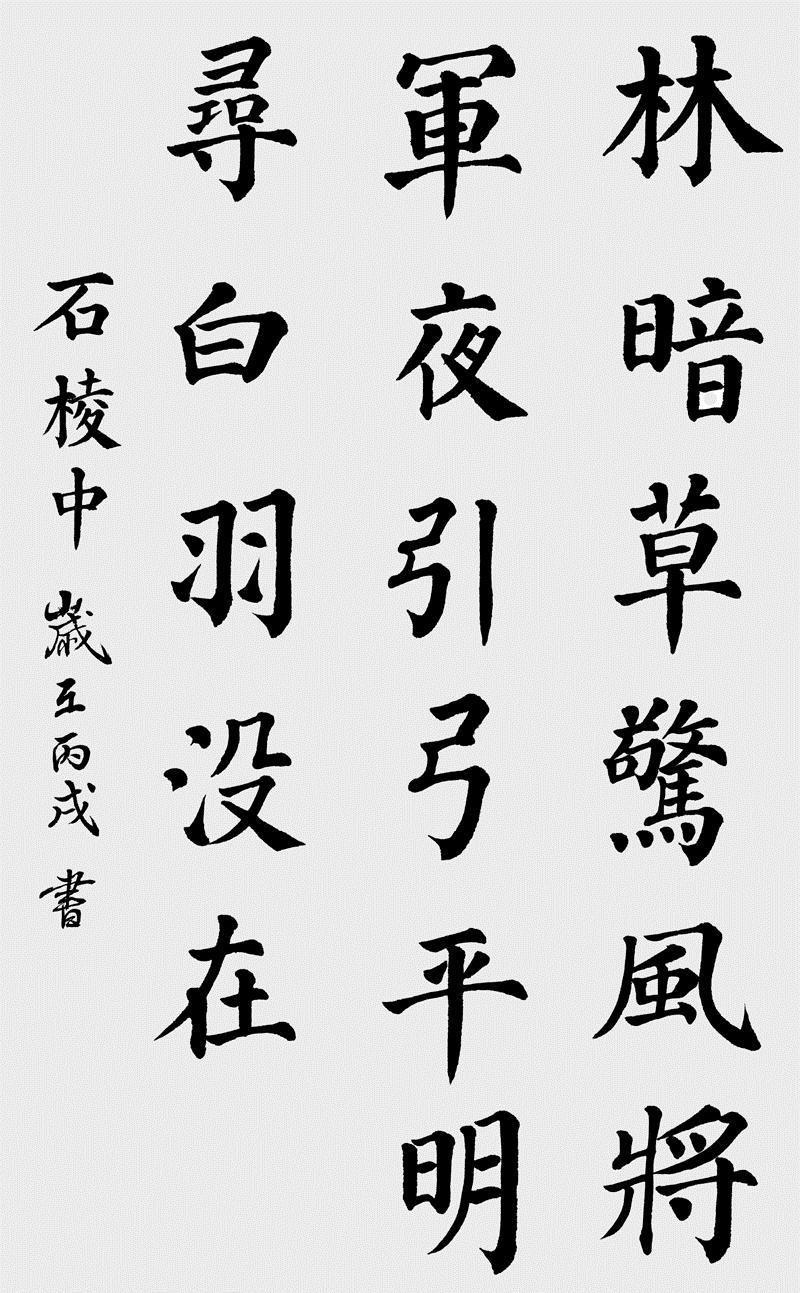 林暗草驚風將
軍夜引弓平明
尋白羽没在
石棱中 歲在丙戌 書